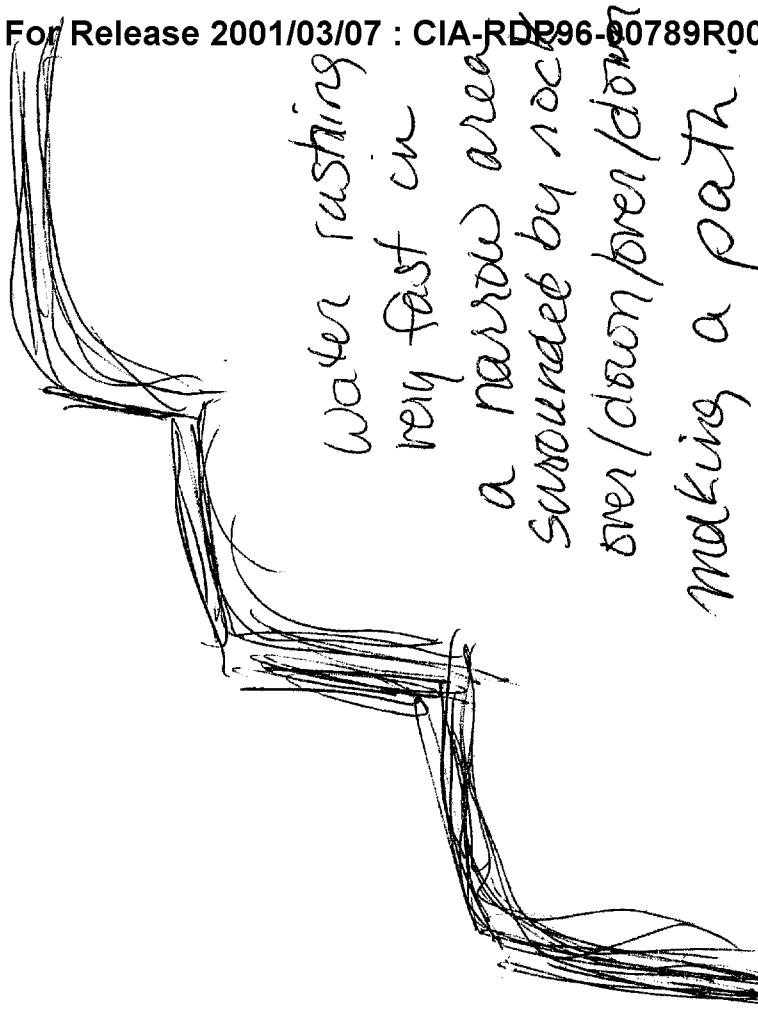 For Release 2001/03/07 : CIA-RDP96-00789R00
Water rushing
very fast in
a narrow area
surounded by rock
over/down/over/down
making a path.